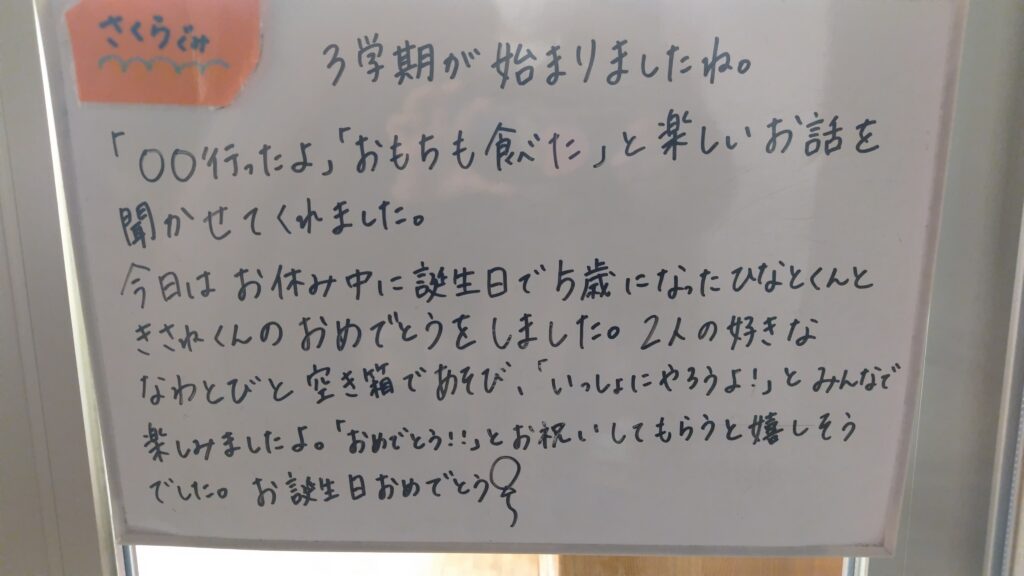 さくらぐみ
3学期が始まりましたね。
「〇〇行ったよ」「おもちも食べた」と楽しいお話を
聞かせてくれました。
今日はお休み中に誕生日で5歳になったひなとくんと
きさねくんのおめでとうをしました。2人の好きな
なわとびと空き箱であそび、「いっしょにやろうよ!」とみんなで
楽しみましたよ。「おめでとう!!」とお祝いしてもらうと嬉しそう
でした。お誕生日おめでとう